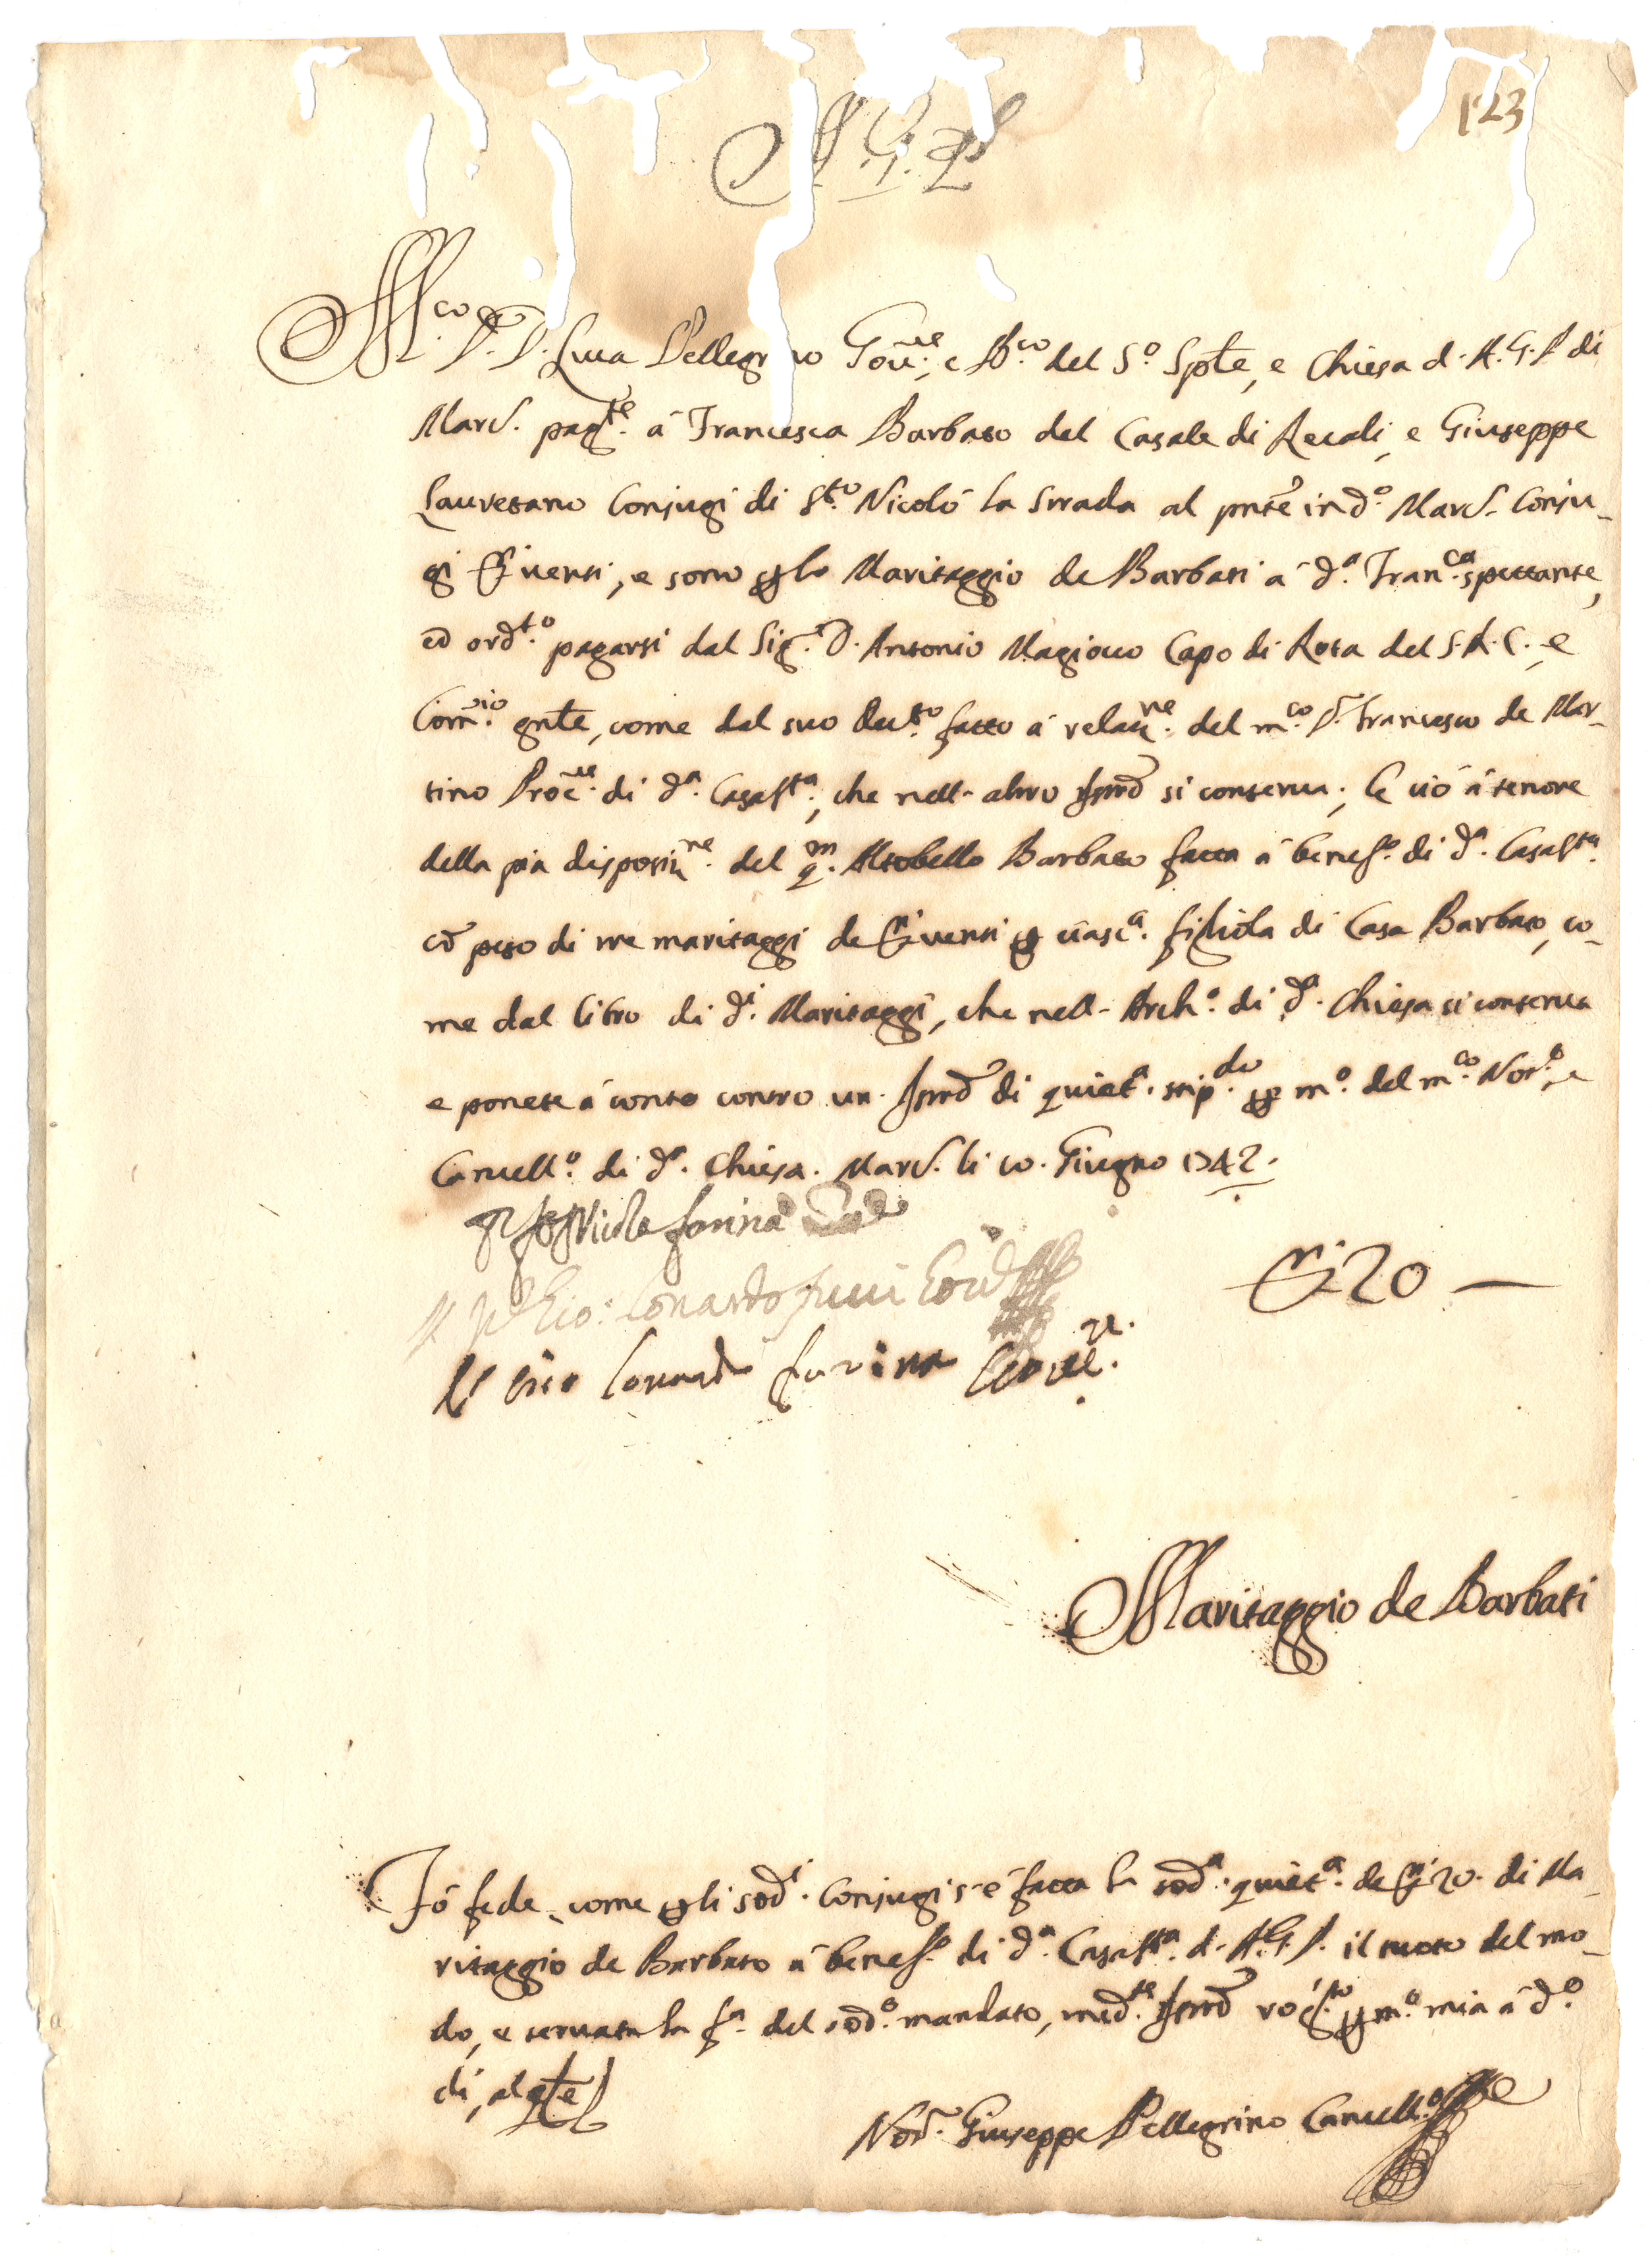 123
A. G. P.
M.co D.r D. Luca Pellegrino Gov.re, e B.co del S.o Spte, e Chiesa d. A. G. P. di
Marc.e pag.te á Francesca Barbato del Casale di Recali, e Giuseppe
Lauretano Conjugi di S.to Nicoló la Strada al pnte in d.o Marc.e Conju-
gi D.ti venti, e sono p lo Maritaggio de Barbati á d.a Fran.ca spettante,
ed ord.to pagarsi dal Sig.r D. Antonio Magiocco Capo di Rota del S. R. C. e
Com.rio gnte, come dal suo decr.to fatto á relaz.ne del m.co D.r Francesco de Mar-
tino Proc.re di d.a Casa S.ta, che nell' altro si conserva; E ció á tenore
della pia disposiz.ne del q.m Barbato fatta á benef.o di d.a Casa S.ta
có peso di tre maritaggi de D.ti venti p ciasc.a figliola di Casa Barbato, co-
me dal libro di d.i Maritaggi, che nell' Arch.o di d.a Chiesa si conserva
e ponete á conto contro un di quiet.a stip.do p m.o del m.co Not.o, e
Cancell.o di d.a Chiesa. Marc.e li 10. Giugno 1742.
Nicola farina
Gio: Lonardo
D.ti 20 —
Gio Lonardo farina Gov.re
Maritaggio de Barbati
Fó fede, come p li sod.i Conjugi s' é fatta la sod.a quiet.a de D.ti 20. di Ma-
ritaggio de Barbato á benef.o di d.a Casa S.ta d. A. G. P. il tutto del mo-
do, e servata la f.a del sod.o mandato, med.te rog.to p m.o mia á d.o
dí,
Not.r Giuseppe Pellegrino Cancell.o